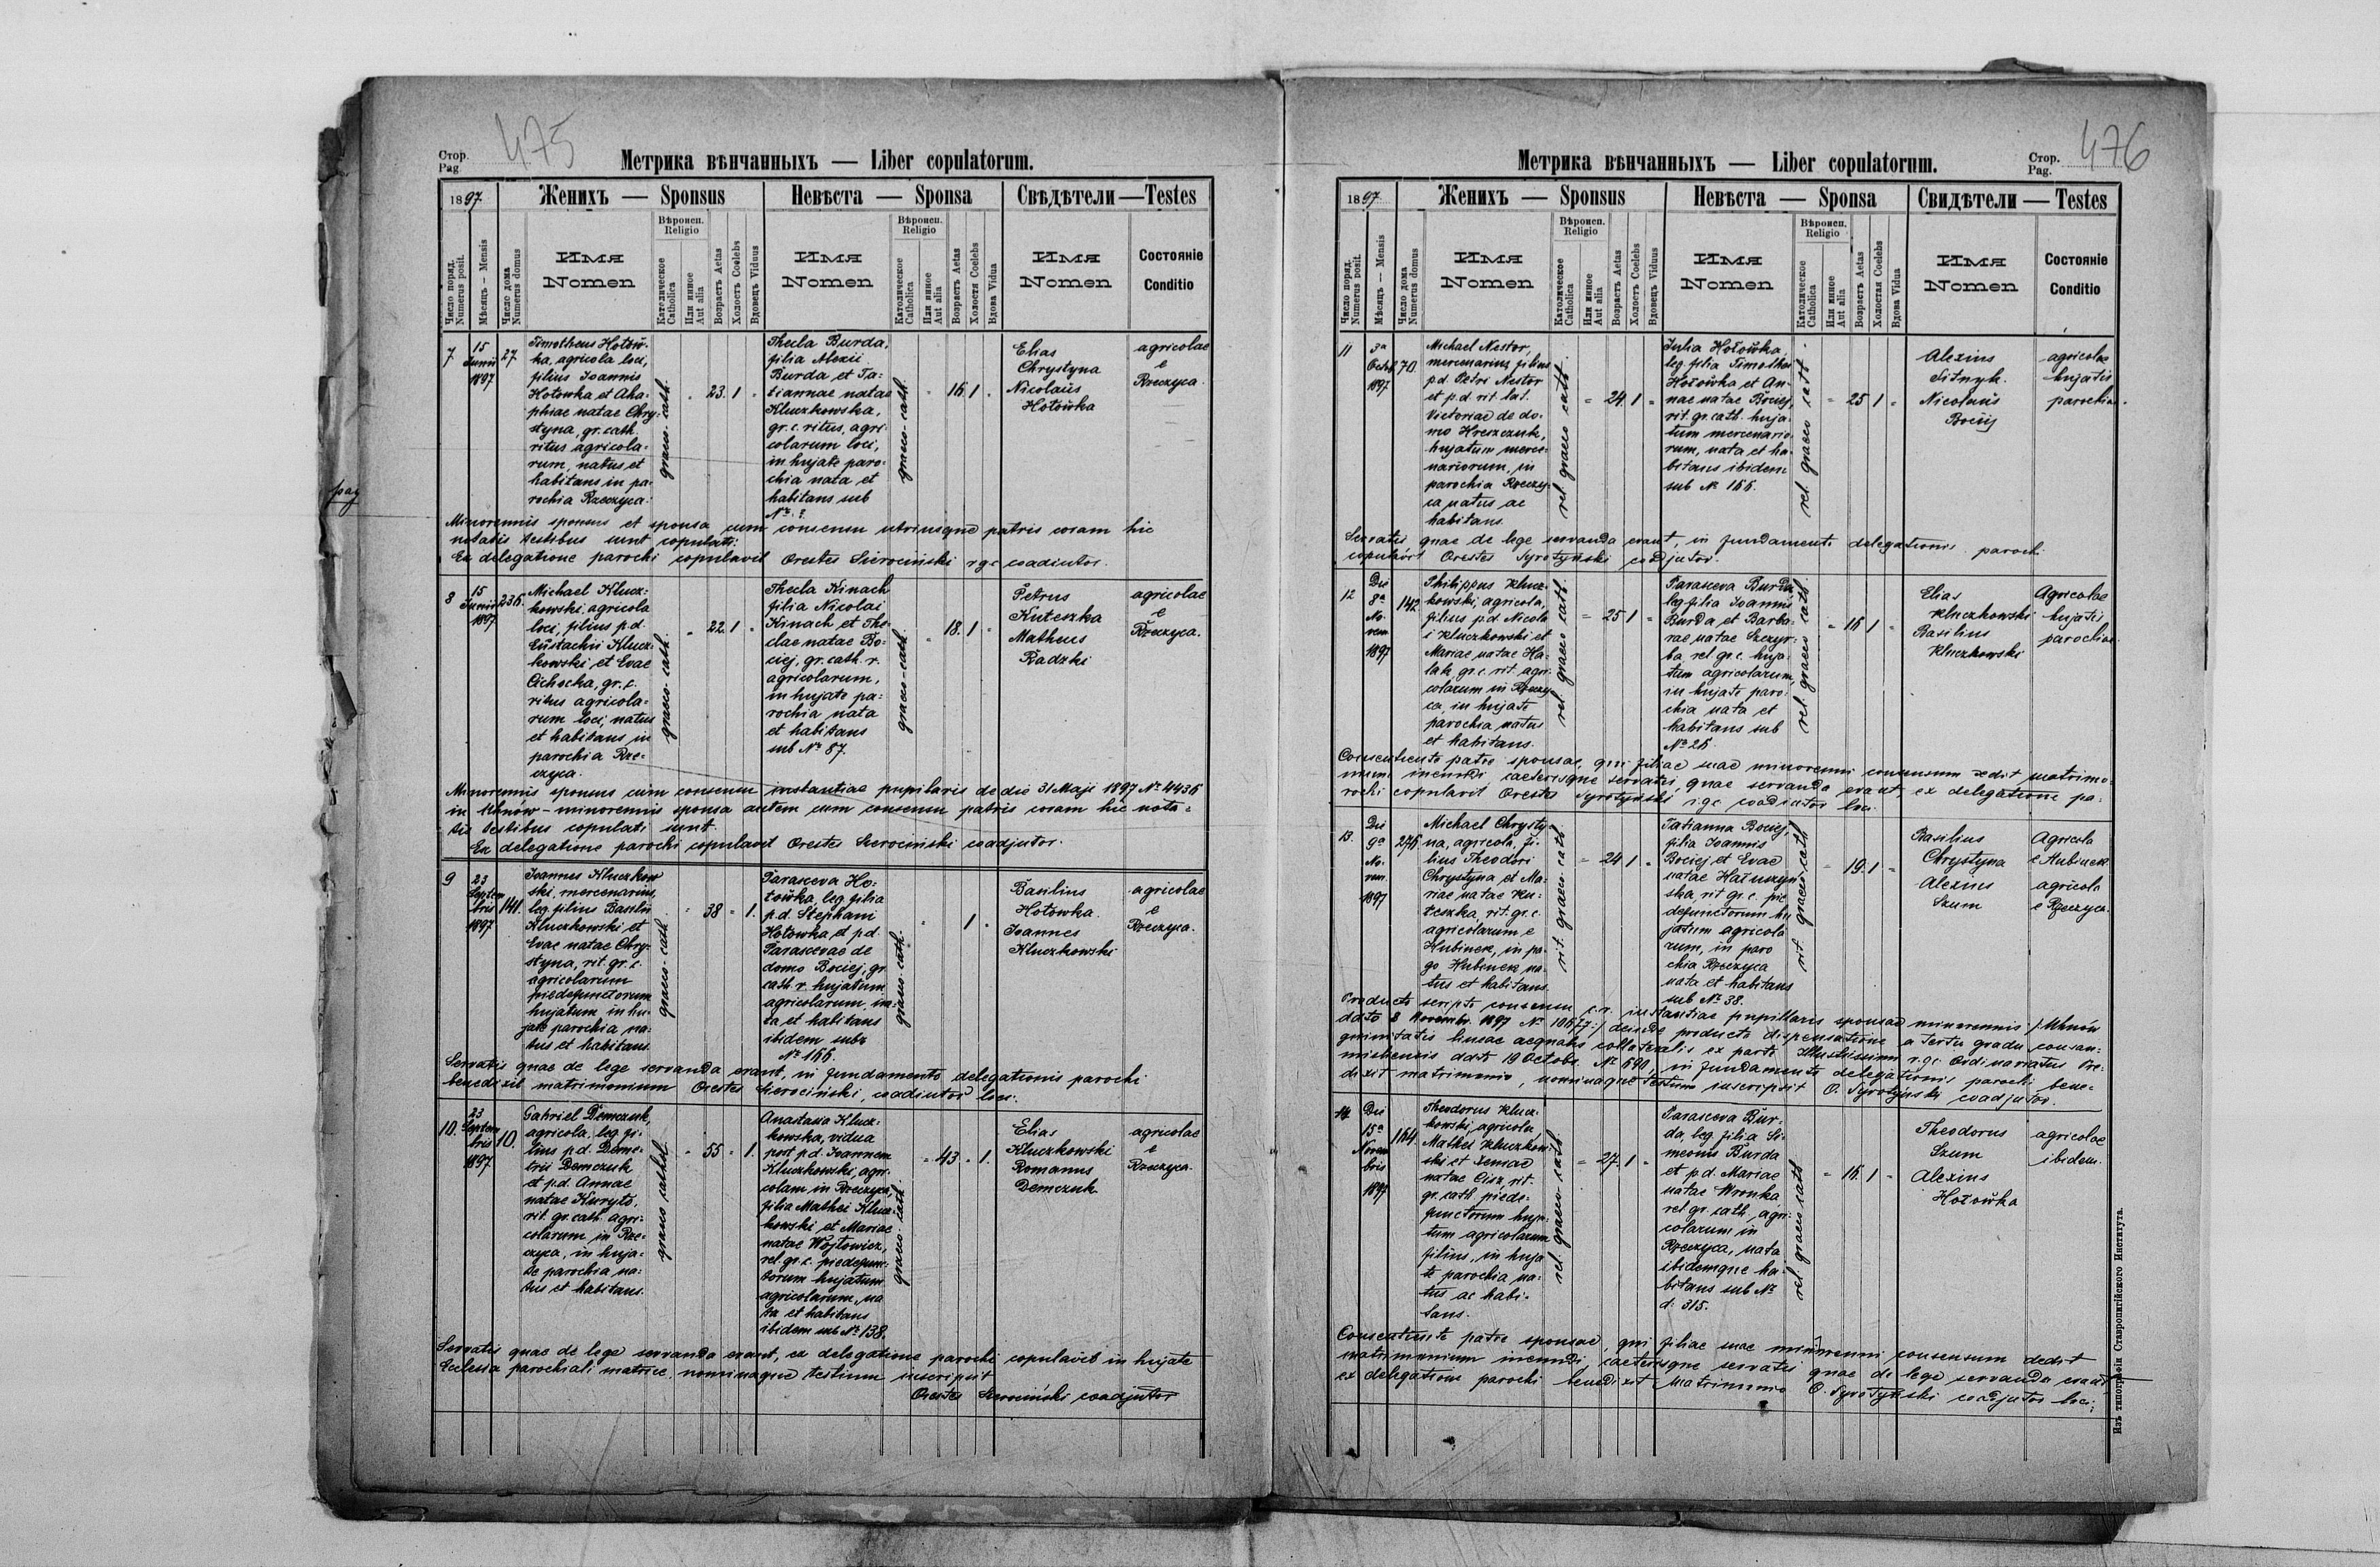 475
Стор.
Pag.
Метрика вѣнчанныхъ — Liber copulatorum.
1897
Женихъ — Sponsus
Невѣста — Sponsa
Свѣдѣтели — Testes
Число поряд.
Numerus posit.
Мѣсяцъ — Mensis
Число дома
Numerus domus
Имя
Nomen
Вѣроисп.
Religio
Католическое
Catholica
Или иное
Aut alia
Возрастъ Aetas
Холостъ Coelebs
Вдовецъ Viduus
Имя
Nomen
Вѣроисп.
Religio
Католическое
Catholica
Или иное
Aut alia
Возрастъ Aetas
Холостя Coelebs
Вдова Vidua
Имя
Nomen
Состояніе
Conditio
7
15
Junii
1897
27
Timotheus Hotow-
ka, agricola loci,
filius Joannis
Hotowka et Aha-
phiae natae Chry-
styna, gr. cath.
ritus agricola-
rum, natus et
habitans in pa-
rochia Rzeczyca.
graeco-cath.
23. 1
Thecla Burda,
filia Alexii
Burda et Ta-
tiannae natae
Kluczkowska,
gr. c. ritus, agri-
colarum loci,
in hujate paro-
chia nata et
habitans sub
graeco-cath.
16. 1
Elias
Chrystyna
Nicolaus
Hotówka
agricolae
e
Rzeczyca.
Minorennis sponsus et sponsa cum consensu utriusque patris coram hic
notatis testibus sunt copulati.
Ex delegatione parochi copulavit Orestes Sierociński r. g. c. coadiutor.
pag
8
15
Junii
1897
236.
Michael Klucz-
kowski, agricola
loci, filius p.d.
Eustachii Klucz-
kowski et Evae
Cichocka, gr. c.
ritus agricola-
rum loci, natus
et habitans in
parochia Rze-
czyca.
graeco-cath.
22. 1
Thecla Kinach
filia Nicolai
Kinach et The-
clae natae Bo-
ciej, gr. cath. r.
agricolarum,
in hujate pa-
rochia nata
et habitans
sub No 87.
graeco-cath.
18. 1
Petrus
Kuteszka
Matheus
Radzki
agricolae
e
Rzeczyca.
Minorennis sponsus cum consensu instantiae pupilaris de die 31 Maji 1897 No 4436
in Uhnów – minorennis sponsa autem cum consensu patris coram hic nota-
tis testibus copulati sunt.
Ex delegatione parochi copulavit Orestes Sierociński coadjutor.
9
23
Septem
bris
1897
141.
Joannes Kluczkow
ski, mercenarius,
leg. filius Basilii
Kluczkowski et
Evae natae Chry-
styna, rit. gr. c.
agricolarum
piedefunctorum
hujatum in hu-
jate parochia na-
tus et habitans.
graeco-cath.
38 - 1.
Parasceva Ho-
tówka, leg. filia
p.d. Stephani
Hotowka et p.d.
Parascevae de
domo Bociej, gr.
cath. r. hujatum
agricolarum, na-
ta et habitans
ibidem sub
No 166.
graeco-cath.
1
Basilius
Hotowka
Joannes
Kluczkowski
agricolae
e
Rzeczyca.
Servatis quae de lege servanda erant, in fundamento delegationis parochi
benedixit matrimonium Orestes Sierociński, coadiutor loci.
10.
23
Septem
bris
1897
10.
Gabriel Demczuk,
agricola, leg. fi-
lius p.d. Deme-
trii Demczuk
et p.d. Annae
natae Kuryto,
rit. gr. cath. agri-
colarum in Rze-
czyca, in huja-
te parochia na-
tus et habitans.
graeco cathol.
55 - 1.
Anastasia Klucz-
kowska, vidua
post p.d. Joannem
Kluczkowski, agri-
colam in Rzeczyca,
filia Mathei Klucz-
kowski et Mariae
natae Wojtowicz,
rel. gr. c. piedefunc-
torum hujatum
agricolarum, na
ta et habitans
ibidem sub No 138.
graeco-cath.
43 - 1.
Elias
Kluczkowski
Romanus
Demczuk
agricolae
e
Rzeczyca.
Servatis quae de lege servanda erant, ex delegatione parochi copulavit in hujate
Ecclesia parochiali matrice, nominaque testium inscripsit
Orestes Sierociński coadjutor
476
Стор.
Pag.
Метрика вѣнчанныхъ — Liber copulatorum.
1897
Женихъ — Sponsus
Невѣста — Sponsa
Свидѣтели — Testes
Число поряд.
Numerus posit.
Мѣсяцъ — Mensis
Число дома
Numerus domus
Имя
Nomen
Вѣроисп.
Religio
Католическое
Catholica
Или иное
Aut alia
Возрастъ Aetas
Холостъ Coelebs
Вдовецъ Viduus
Имя
Nomen
Вѣроисп.
Religio
Католическое
Catholica
Или иное
Aut alia
Возрастъ Aetas
Холостая Coelebs
Вдова Vidua
Имя
Nomen
Состояніе
Conditio
11
3a
Octob
1897
70.
Michael Nestor,
mercenarius, filius
p.d. Petri Nestor
et p.d. rit. lat.
Victoriae de do-
mo Hreszczuk,
hujatum merce-
nariorum, in
parochia Rzeczy-
ca natus ac
habitans.
rel. graeco cath.
24. 1
Julia Hołowka
leg. filia Timothei
Hołowka et An-
nae natae Bociej,
rit. gr. cath. huja-
tum mercenario-
rum, nata et ha-
bitans ibidem
sub No 166.
rel. graeco cath.
25 1
Alexius
Sitnyk.
Nicolaus
Bociej
agricolae
hujatis
parochiae.
Servatis quae de lege servanda erant, in fundamento delegationis parochi
copulavit Orestes Syrotyński coadjutor.
12
Die
8a
No-
vem.
1897
142
Philippus Klucz-
kowski, agricola,
filius p.d. Nicola
i Kluczkowski et
Mariae natae Ha-
lak gr. c. rit. agri-
colarum in Rzeczy
ca, in hujate
parochia natus
et habitans.
rel. graeco cath.
25 1
Parasceva Burda
leg. filia Joannis
Burda et Barba-
rae natae Szczyr-
ba rel. gr. c. huja-
tum agricolarum,
in hujate paro-
chia nata et
habitans sub
No 26.
rel. graeco cath.
16 1
Elias
Kluczkowski
Basilius
Kluczkowski
Agricolae
hujatis
parochiae
Consentiente patre sponsae, qui filiae suae minorenni consensum dedit matrimo-
nium ineundi, caeterisque servatis, quae servanda erant, ex delegatione pa-
rochi copulavit Orestes Syrotyński r.g.c. coadiutor loci.
13.
Die
9a
No-
vem.
1897
276
Michael Chrysty-
na, agricola, fi-
lius Theodori
Chrystyna et Ma-
riae natae Ku-
teszka, rit. gr. c.
agricolarum e
Hubinek, in pa-
go Hubinek na-
tus et habitans.
rit. graeco-cath
24 1
Tatianna Bociej,
filia Joannis
Bociej et Evae
natae Hałuszyn-
ska, rit gr. c. pie
defunctorum hu
jatum agricola
rum, in paro
chia Rzeczyca
nata et habitans
sub No 38.
rit. graeco cath
19. 1
Basilius
Chrystyna
Alexius
Szum
Agricola
e Hubinek
agricola
e Rzeczyca.
Producto scripto consensu c.r. instantiae pupillaris sponsae minorennis /: Uhnów
ddto 8 Novembr. 1897 No 10677:/ deinde producta dispensatione a tertio gradu consan-
guinitatis lineae aequalis collateralis ex parte Illustrissimi r.g.c. Ordinariatus Pre-
misliensis ddto 19 Octobr. No 690, in fundamento delegationis parochi bene-
dixit matrimonio, nominaque testium inscripsit O. Syrotyński coadjutor.
14
Die
15a
Novem
bris
1897
164.
Theodorus Klucz-
kowski, agricola
Mathei Kluczkow-
ski et Xeniae
natae Cisz, rit.
gr. cath. piede-
functorum huja-
tum agricolarum
filius, in huja
te parochia na-
tus ac habi-
tans.
rel. graeco-cath.
27. 1
Parasceva Bur-
da, leg. filia Si-
meonis Burda
et p.d. Mariae
natae Wronka
rel gr. cath. agri-
colarum in
Rzeczyca, nata
ibidemque ha-
bitans sub No
d. 315.
rel graeco cath
16. 1
Theodorus
Szum
Alexius
Hołowka
agricolae
ibidem.
Consentiente patre sponsae, qui filiae suae minorenni consensum dedit
matrimonium ineundi, caeterisque servatis quae de lege servanda erant
ex delegatione parochi benedixit Matrimonio O. Syrotyński coadjutor loci.
Изъ типографіи Ставропигійского Института.